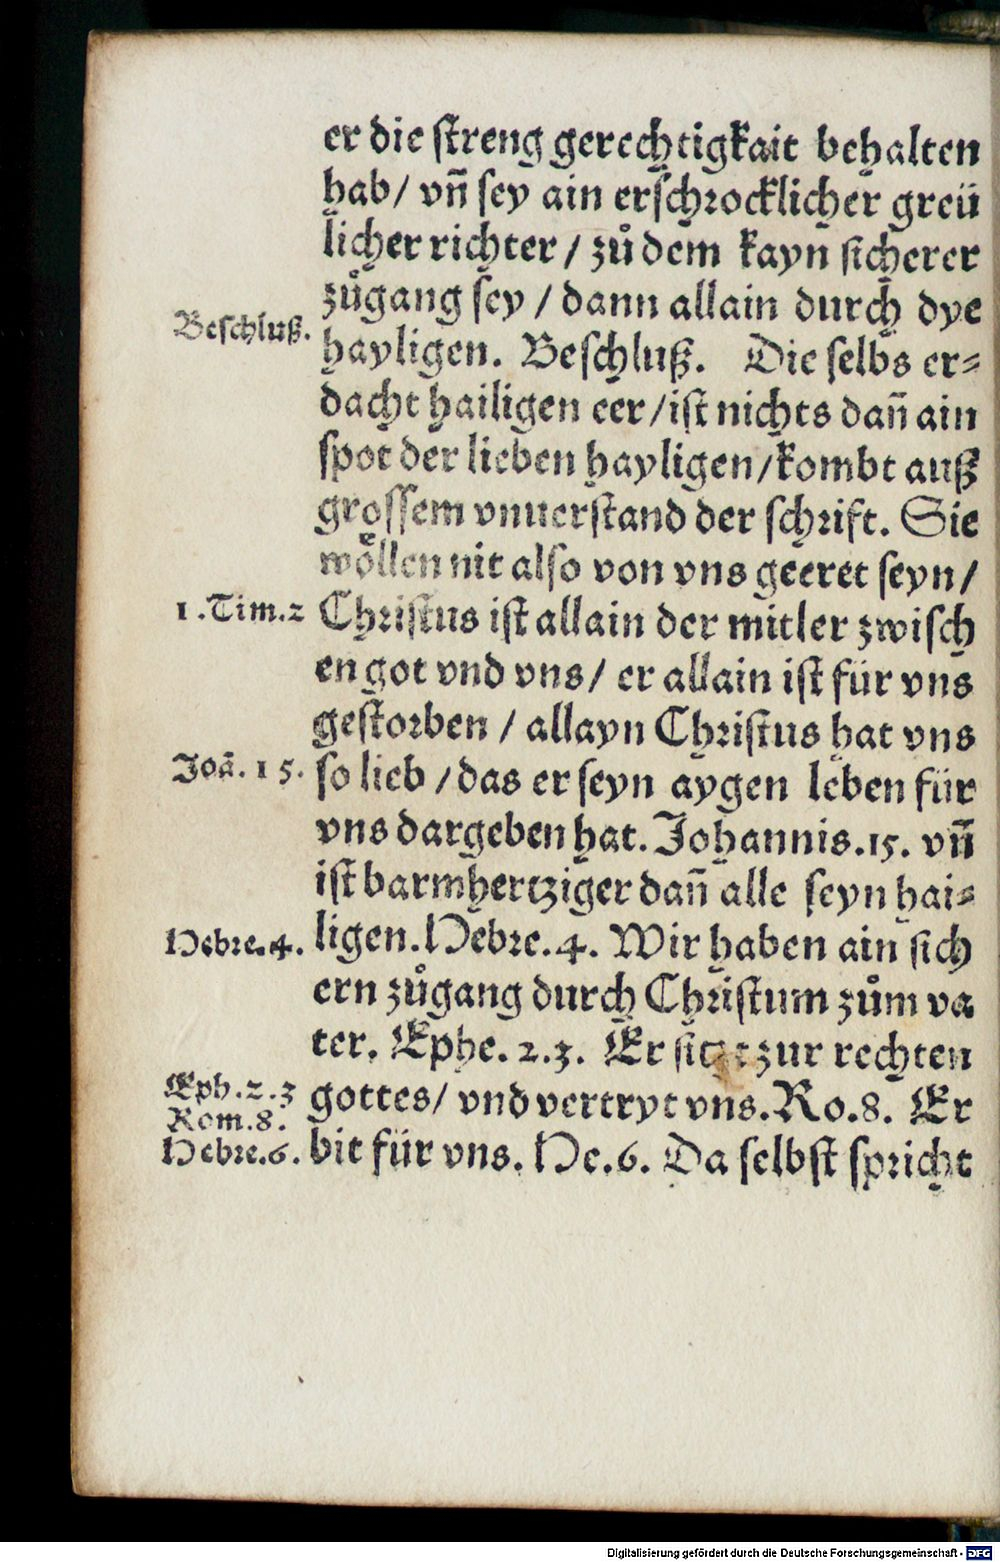 er die streng gerechtigkait behalten
hab/ vñ sey ain erschrocklicher greü
licher richter / zů dem kayn sicherer
zůgang sey / dann allain durch dye
Beschluß.
hayligen. Beschluß. Die selbs er⸗
dacht hailigen eer /ist nichts dañ ain
spot der lieben hayligen/kombt auß
grossem vnuerstand der schrift. Sie
wöllen nit also von vns geeret seyn/
1.Tim.2
Christus ist allain der mitler zwisch
en got vnd vns/ er allain ist für vns
gestorben / allayn Christus hat vns
Joã. 15.
so lieb / das er seyn aygen leben für
vns dargeben hat. Johannis.15. vñ
ist barmhertziger dañ alle seyn hai⸗
Hebre.4.
ligen. Hebre.4. Wir haben ain sich
ern zůgang durch Christum zům va
ter. Ephe. 2.3. Er sitzt zur rechten
Eph.2.3
gottes/ vnd vertryt vns. Ro.8. Er
Rom.8.
Hebre.6.
bit für vns. He.6. Da selbst spricht
Digitalisierung gefördert durch die Deutsche Forschungsgemeinschaft - DFG